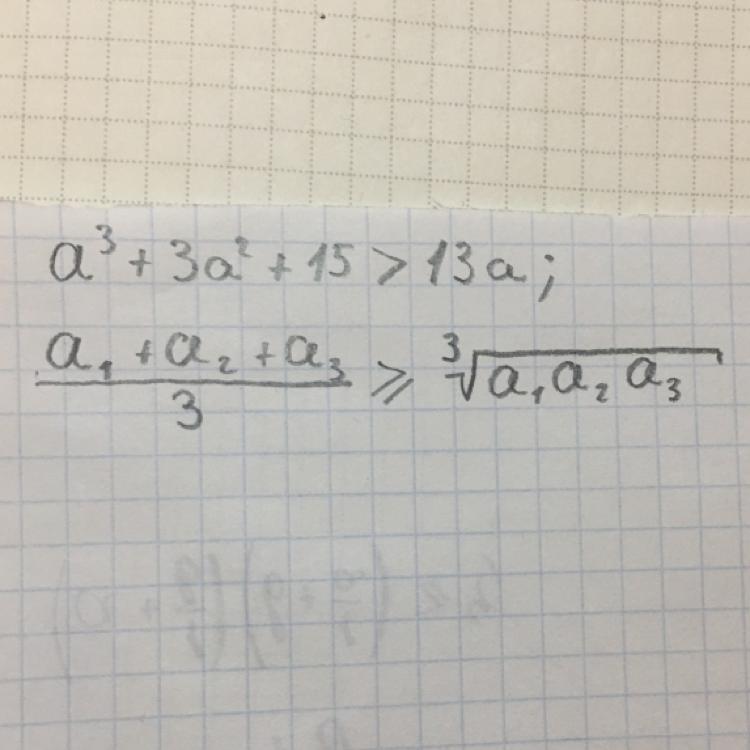 a³ + 3a² + 15 > 13a;
(a₁ + a₂ + a₃)/3 ⩾ ∛(a₁a₂a₃)